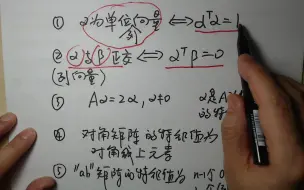 ① α为单位列向量 ⟺ αᵀα=1
② α与β正交 ⟺ αᵀβ=0
(列向量)
③ Aα=2α, α≠0 α是A
的特
④ 对角矩阵的特征值为
对角线上元素
⑤ "ab"矩阵的特征值为 n-1个